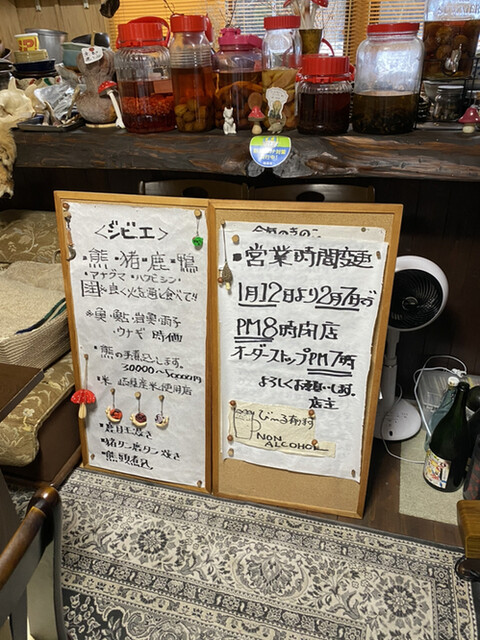 <ジビエ>
・熊・猪・鹿・鴨
・アナグマ・ハクビシン・
良く火を通し食べて!!
ウナギ 時価
・熊の手煮込します。
30000〜50000円
・米 産米使用店
・猪タン鹿タン焼き
今日のきのこ
・営業時間変更
1月12日より2月7日まで
PM8時閉店
オーダーストップPM7時
よろしくお願いします。
店主
びーる有ります
NON
ALCOHOL